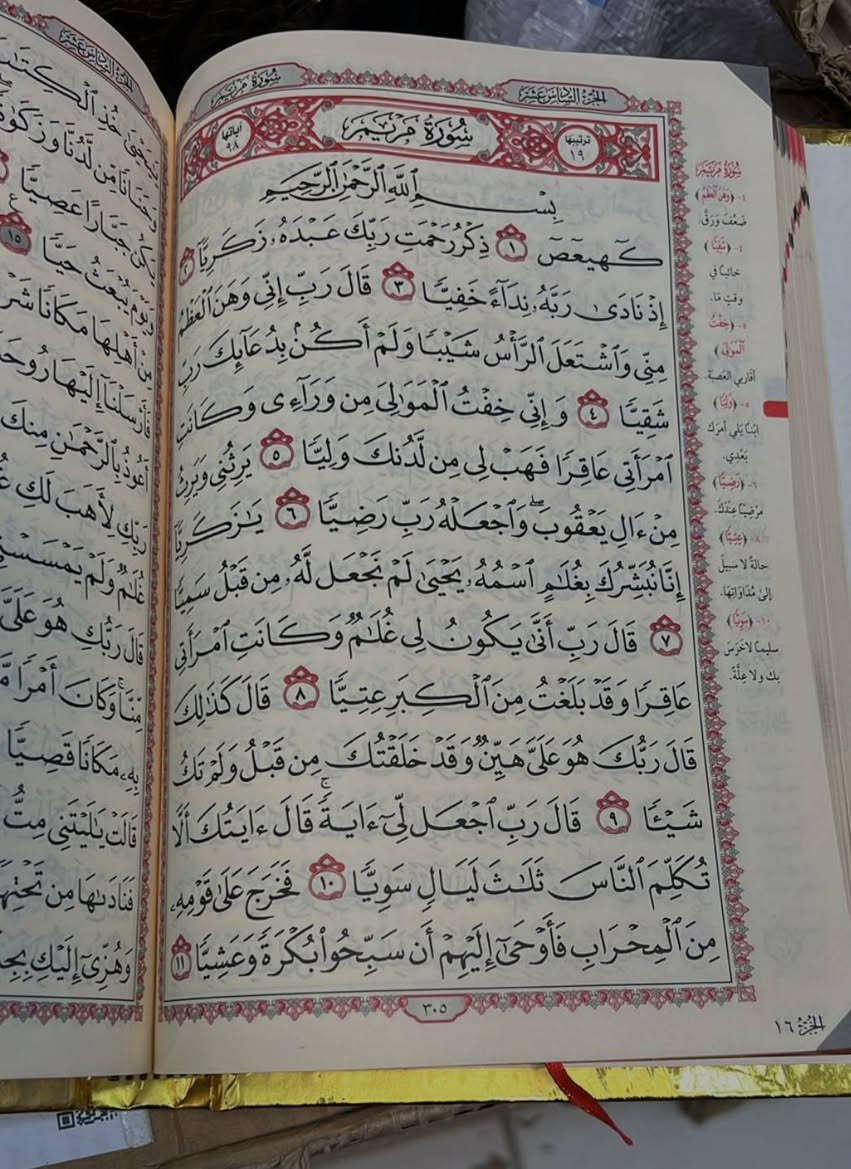 سُورَةُ مَرْيَم
الجُزْءُ السَّادِسَ عَشَرَ
ترتيبها ١٩
سُورَةُ مَرْيَم
آياتها ٩٨
بِسْمِ ٱللَّهِ ٱلرَّحْمَٰنِ ٱلرَّحِيمِ
كٓهيعٓصٓ ١ ذِكْرُ رَحْمَتِ رَبِّكَ عَبْدَهُۥ زَكَرِيَّآ ٢
إِذْ نَادَىٰ رَبَّهُۥ نِدَآءً خَفِيًّا ٣ قَالَ رَبِّ إِنِّى وَهَنَ ٱلْعَظْمُ
مِنِّى وَٱشْتَعَلَ ٱلرَّأْسُ شَيْبًا وَلَمْ أَكُنۢ بِدُعَآئِكَ رَبِّ
شَقِيًّا ٤ وَإِنِّى خِفْتُ ٱلْمَوَٰلِىَ مِن وَرَآءِى وَكَانَتِ
ٱمْرَأَتِى عَاقِرًا فَهَبْ لِى مِن لَّدُنكَ وَلِيًّا ٥ يَرِثُنِى وَيَرِثُ
مِنْ ءَالِ يَعْقُوبَ ۖ وَٱجْعَلْهُ رَبِّ رَضِيًّا ٦ يَٰزَكَرِيَّآ
إِنَّا نُبَشِّرُكَ بِغُلَٰمٍ ٱسْمُهُۥ يَحْيَىٰ لَمْ نَجْعَل لَّهُۥ مِن قَبْلُ سَمِيًّا
٧ قَالَ رَبِّ أَنَّىٰ يَكُونُ لِى غُلَٰمٌ وَكَانَتِ ٱمْرَأَتِى
عَاقِرًا وَقَدْ بَلَغْتُ مِنَ ٱلْكِبَرِ عِتِيًّا ٨ قَالَ كَذَٰلِكَ
قَالَ رَبُّكَ هُوَ عَلَىَّ هَيِّنٌ وَقَدْ خَلَقْتُكَ مِن قَبْلُ وَلَمْ تَكُ
شَيْـًٔا ٩ قَالَ رَبِّ ٱجْعَل لِّىٓ ءَايَةً ۚ قَالَ ءَايَتُكَ أَلَّا
تُكَلِّمَ ٱلنَّاسَ ثَلَٰثَ لَيَالٍ سَوِيًّا ١٠ فَخَرَجَ عَلَىٰ قَوْمِهِۦ
مِنَ ٱلْمِحْرَابِ فَأَوْحَىٰٓ إِلَيْهِمْ أَن سَبِّحُوا۟ بُكْرَةً وَعَشِيًّا ١١
٣٠٥
الجُزْءُ ١٦
سُورَةُ مَرْيَم
٤- ﴿وَهَنَ الْعَظْمُ﴾
ضَعُفَ وَرَقَّ.
﴿شَقِيًّا﴾
خائبًا في
وقتٍ مَا.
٥- ﴿خِفْتُ
الْمَوَالِيَ﴾
أقاربي العصبة.
٥- ﴿وَلِيًّا﴾
ابْنًا يَلِي أمرَك
بَعْدِي.
٦- ﴿رَضِيًّا﴾
مرْضِيًّا عِنْدَكَ.
٨- ﴿عِتِيًّا﴾
حالةً لا سبيلَ
إلى مُداوَاتِهَا.
١٠- ﴿سَوِيًّا﴾
سليمًا لا خَرَسَ
بك ولا عِلَّةَ.
الجُزْءُ السَّادِسَ عَشَرَ
خُذِ ٱلْكِتَٰبَ
وَحَنَانًا مِّن لَّدُنَّا وَزَكَوٰةً
يَكُن جَبَّارًا عَصِيًّا
وَيَوْمَ يُبْعَثُ حَيًّا ١٥
مِنْ أَهْلِهَا مَكَانًا
فَأَرْسَلْنَآ إِلَيْهَا
أَعُوذُ بِٱلرَّحْمَٰنِ مِنكَ
رَبِّكِ لِأَهَبَ لَكِ
غُلَٰمٌ وَلَمْ يَمْسَسْنِى
قَالَ رَبُّكِ هُوَ عَلَىَّ
مِّنَّا ۚ وَكَانَ أَمْرًا
بِهِۦ مَكَانًا قَصِيًّا
قَالَتْ يَٰلَيْتَنِى مِتُّ
فَنَادَىٰهَا مِن تَحْتِهَآ
وَهُزِّىٓ إِلَيْكِ